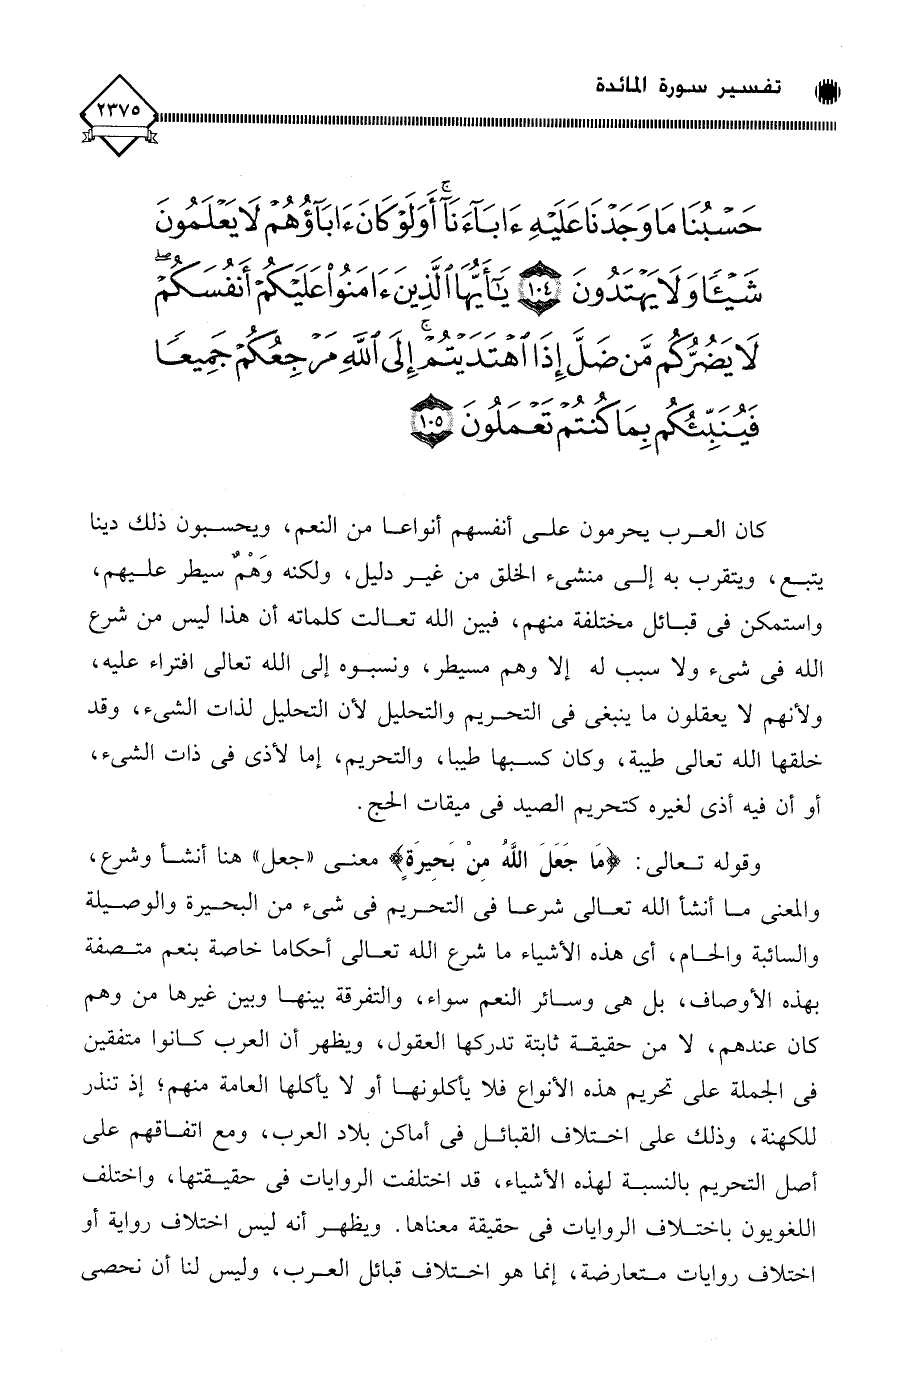 تفسير سورة المائدة
٢٣٧٥
حَسْبُنَا مَا وَجَدْنَا عَلَيْهِ ءَابَآءَنَآ ۚ أَوَلَوْ كَانَ ءَابَآؤُهُمْ لَا يَعْلَمُونَ
شَيْـًٔا وَلَا يَهْتَدُونَ ١٠٤ يَـٰٓأَيُّهَا ٱلَّذِينَ ءَامَنُوا۟ عَلَيْكُمْ أَنفُسَكُمْ ۖ
لَا يَضُرُّكُم مَّن ضَلَّ إِذَا ٱهْتَدَيْتُمْ ۚ إِلَى ٱللَّهِ مَرْجِعُكُمْ جَمِيعًا
فَيُنَبِّئُكُم بِمَا كُنتُمْ تَعْمَلُونَ ١٠٥
كان العرب يحرمون على أنفسهم أنواعا من النعم، ويحسبون ذلك دينا
يتبع، ويتقرب به إلى منشىء الخلق من غير دليل، ولكنه وَهْمٌ سيطر عليهم،
واستمكن فى قبائل مختلفة منهم، فبين الله تعالت كلماته أن هذا ليس من شرع
الله فى شىء ولا سبب له إلا وهم مسيطر، ونسبوه إلى الله تعالى افتراء عليه،
ولأنهم لا يعقلون ما ينبغى فى التحريم والتحليل لأن التحليل لذات الشىء، وقد
خلقها الله تعالى طيبة، وكان كسبها طيبا، والتحريم، إما لأذى فى ذات الشىء،
أو أن فيه أذى لغيره كتحريم الصيد فى ميقات الحج.
وقوله تعالى: ﴿مَا جَعَلَ اللَّهُ مِنْ بَحِيرَةٍ﴾ معنى «جعل» هنا أنشأ وشرع،
والمعنى ما أنشأ الله تعالى شرعا فى التحريم فى شىء من البحيرة والوصيلة
والسائبة والحام، أى هذه الأشياء ما شرع الله تعالى أحكاما خاصة بنعم متصفة
بهذه الأوصاف، بل هى وسائر النعم سواء، والتفرقة بينها وبين غيرها من وهم
كان عندهم، لا من حقيقة ثابتة تدركها العقول، ويظهر أن العرب كانوا متفقين
فى الجملة على تحريم هذه الأنواع فلا يأكلونها أو لا يأكلها العامة منهم؛ إذ تنذر
للكهنة، وذلك على اختلاف القبائل فى أماكن بلاد العرب، ومع اتفاقهم على
أصل التحريم بالنسبة لهذه الأشياء، قد اختلفت الروايات فى حقيقتها، واختلف
اللغويون باختلاف الروايات فى حقيقة معناها. ويظهر أنه ليس اختلاف رواية أو
اختلاف روايات متعارضة، إنما هو اختلاف قبائل العرب، وليس لنا أن نحصى